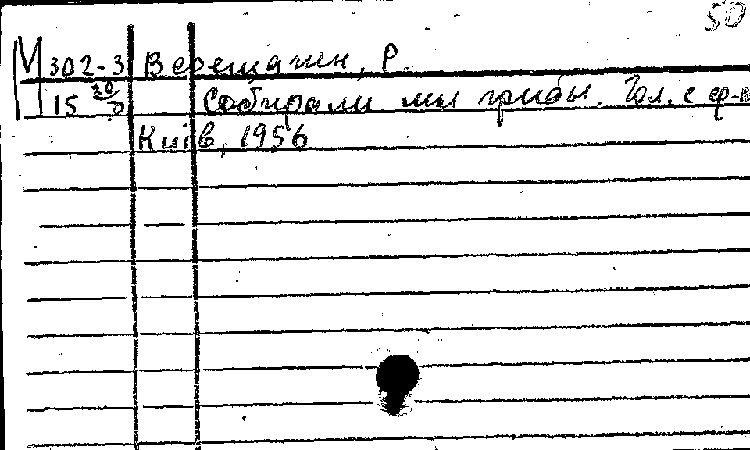 50
М 302-3 Верещагин, Р.
15 Собирали мы грибы. Гол. с ф-п
Київ, 1956